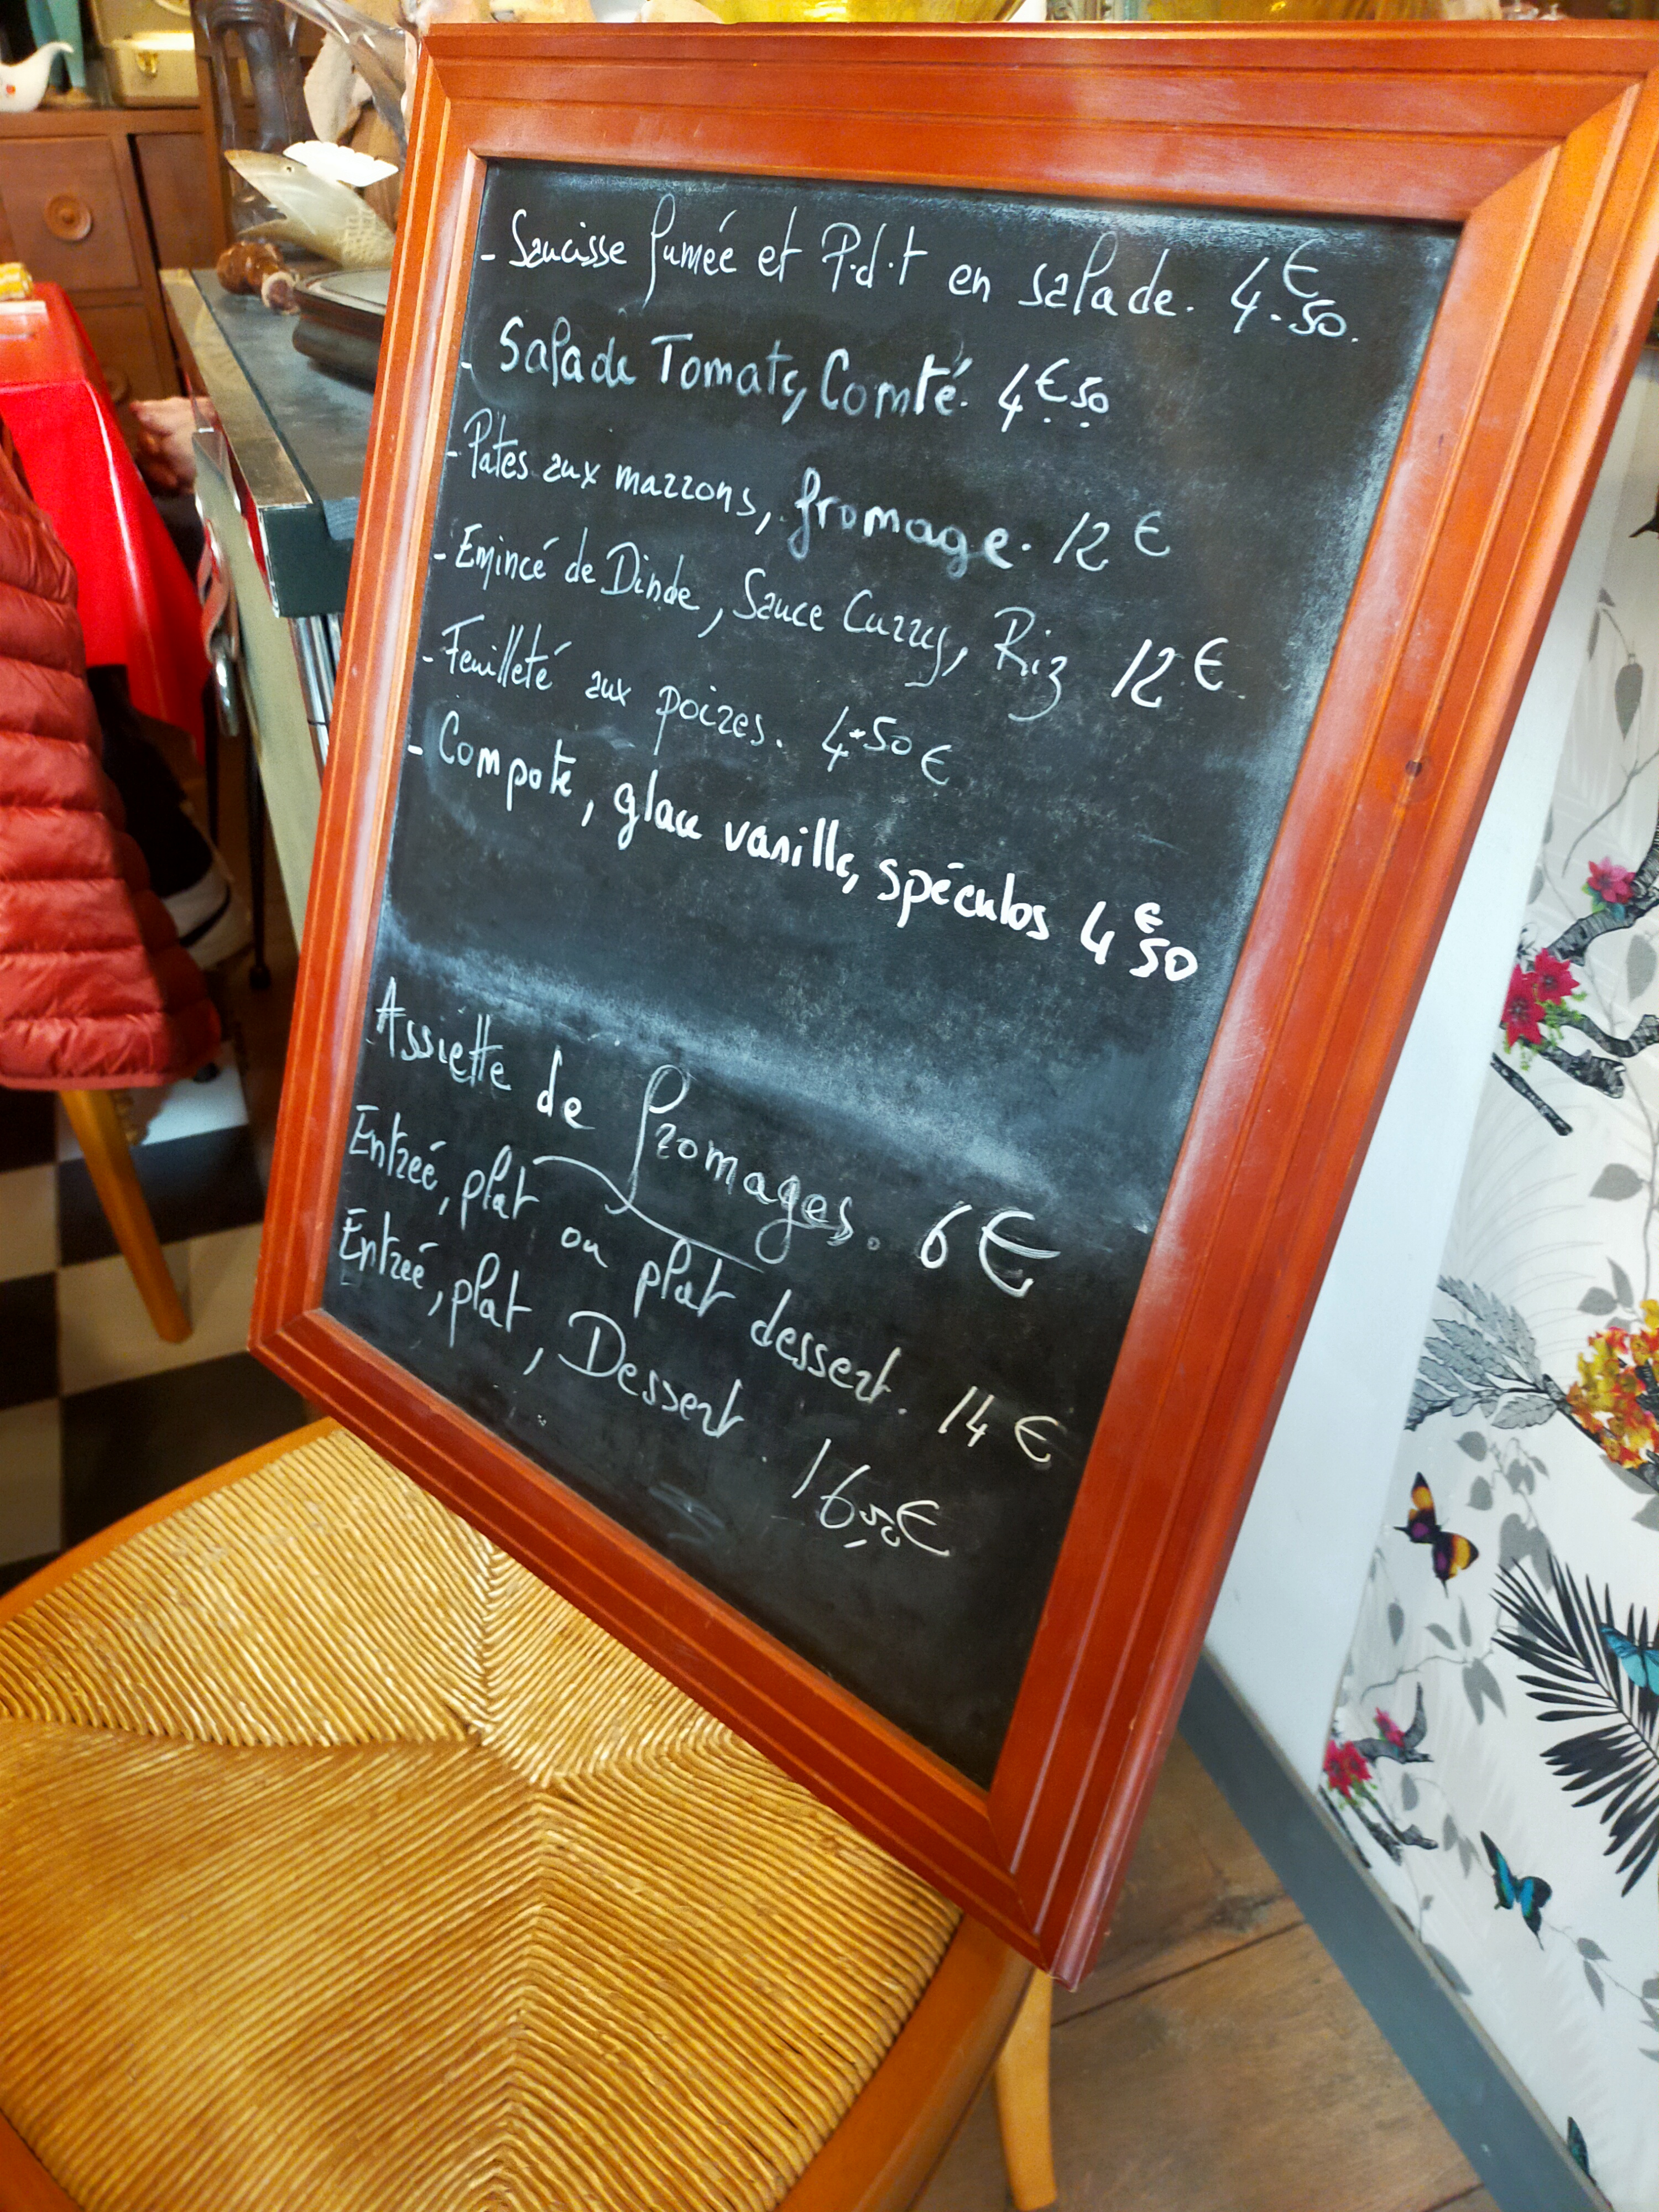 - Saucisse fumée et P.d.t en salade. 4.€50.
- Salade Tomate, Comté. 4€50
- Pates aux marrons, fromage. 12€
- Emincé de Dinde, Sauce Curry, Riz 12€
- Feuilleté aux poires. 4.50€
- Compote, glace vanille, spéculos 4€50
Assiette de fromages. 6€
Entrée, plat ou plat dessert. 14€
Entrée, plat, Dessert. 16,50€